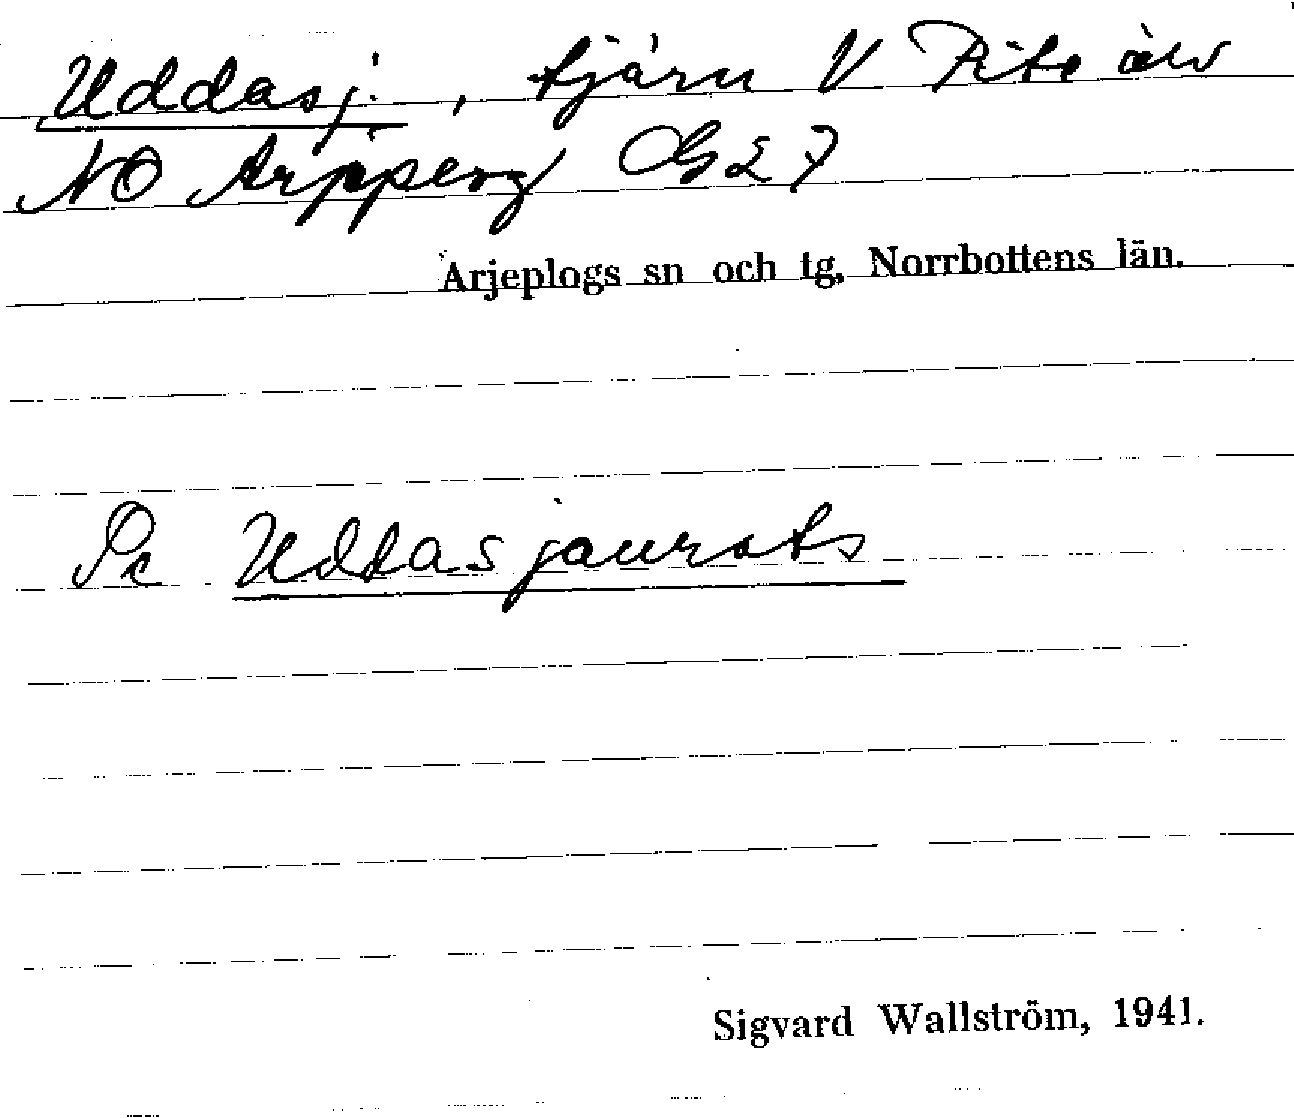 Uddasj., tjärn V Pite älv
NO Arjåperg G27
Arjeplogs sn och tg, Norrbottens län.
Pc Udtasjaurats
Sigvard Wallström, 1941.